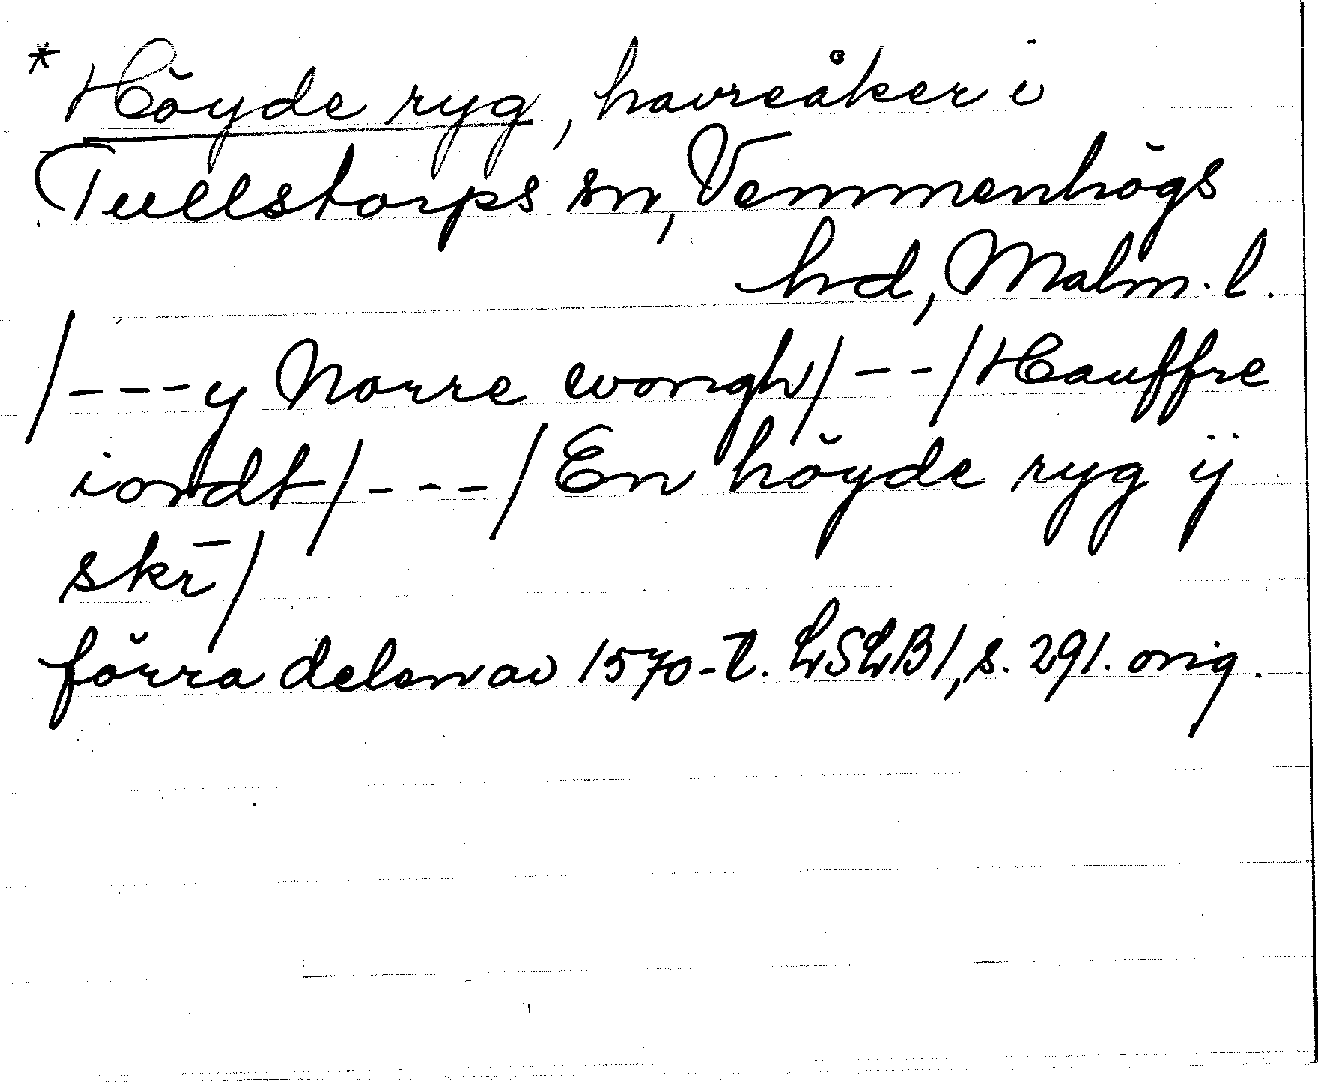 * Höyde ryg, havreåker i
Tullstorps sn, Vemmenhögs
hd, Malm. l.
/---y Norre wongh/--/Hauffre
iordt/---/En höyde ryg ij
skr̄/
förra delen av 1570-t. LSLB1, s. 291. orig.